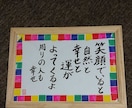 笑顔でいると
自然と
幸せと運が
よってくるよ
周りの人も
幸せ